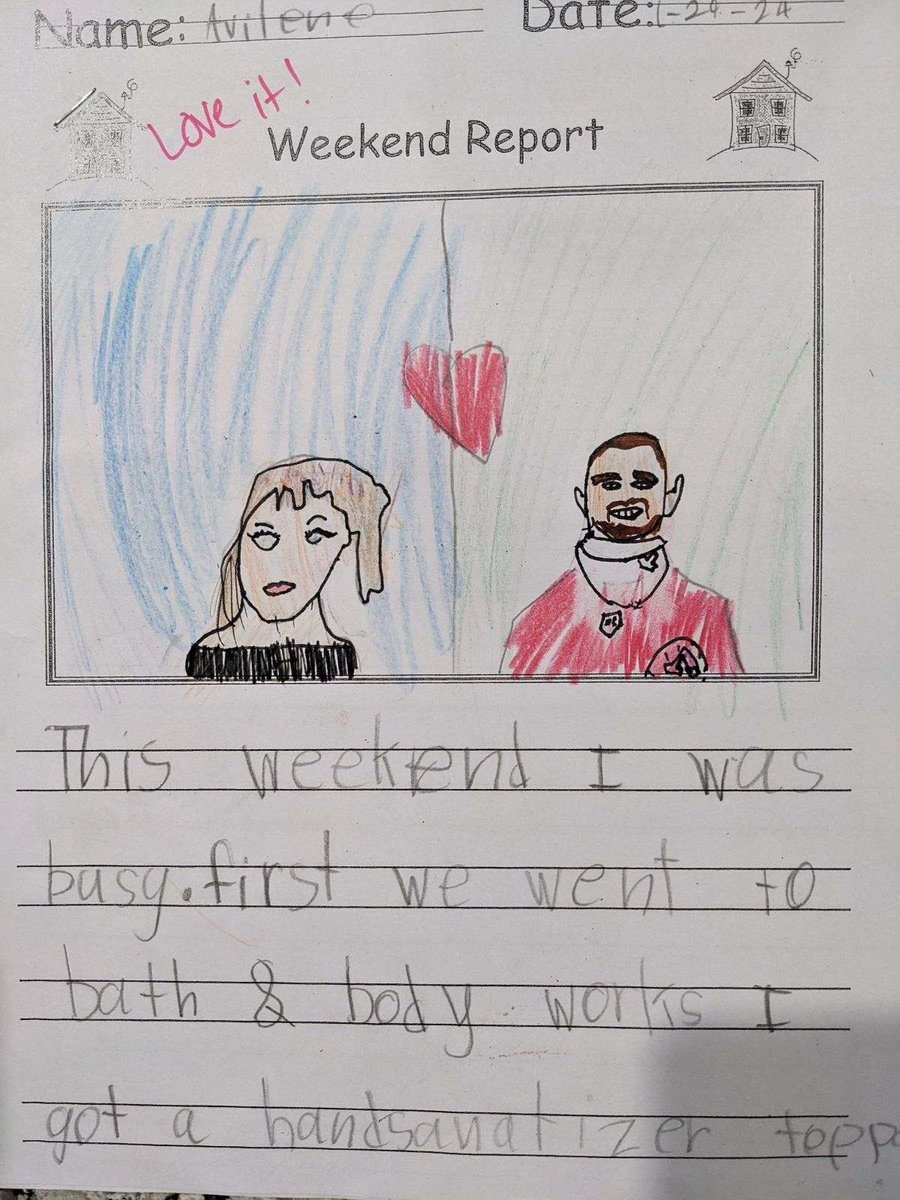 Name: Avilene Date: 1-29-24
Love it!
Weekend Report
This weekend I was
busy. first we went to
bath & body works I
got a handsanatizer topp